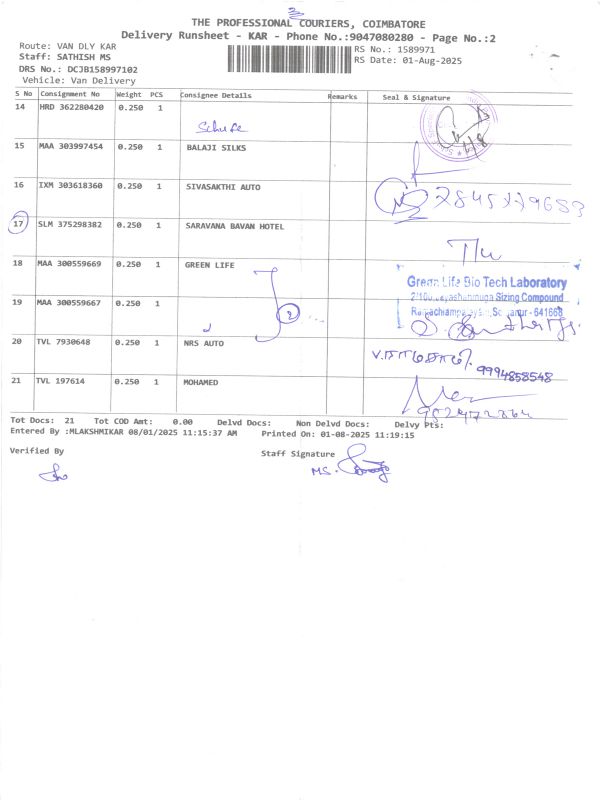 3
THE PROFESSIONAL COURIERS, COIMBATORE
Delivery Runsheet - KAR - Phone No.:9047080280 - Page No.:2
Route: VAN DLY KAR
RS No.: 1589971
Staff: SATHISH MS
RS Date: 01-Aug-2025
DRS No.: DCJB158997102
Vehicle: Van Delivery
S No Consignment No Weight PCS Consignee Details Remarks Seal & Signature
14 HRD 362280420 0.250 1
15 MAA 303997454 0.250 1 BALAJI SILKS
16 IXM 303618360 0.250 1 SIVASAKTHI AUTO
17 SLM 375298382 0.250 1 SARAVANA BAVAN HOTEL
18 MAA 300559669 0.250 1 GREEN LIFE
Green Life Bio Tech Laboratory
Sizing Compound
641668
19 MAA 300559667 0.250 1
2
20 TVL 7930648 0.250 1 NRS AUTO
9994858548
21 TVL 197614 0.250 1 MOHAMED
Tot Docs: 21 Tot COD Amt: 0.00 Delvd Docs: Non Delvd Docs: Delvy Pts:
Entered By :MLAKSHMIKAR 08/01/2025 11:15:37 AM Printed On: 01-08-2025 11:19:15
Verified By
Staff Signature
MS.